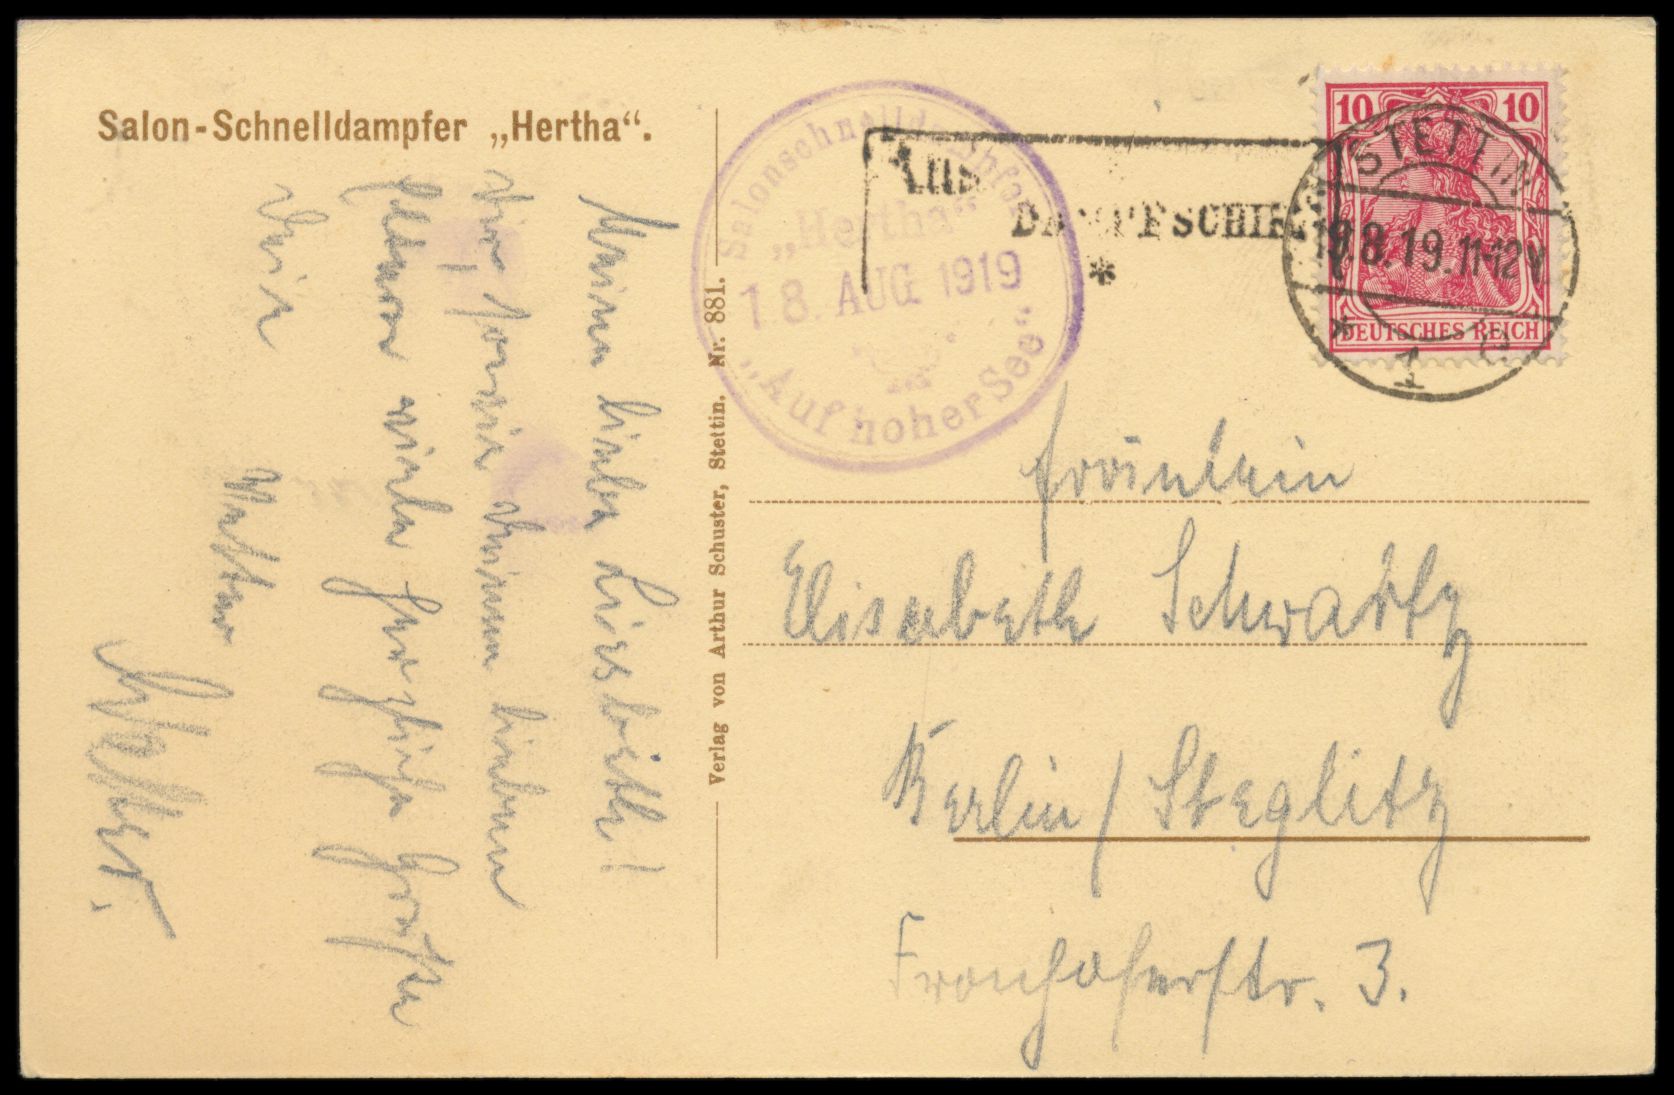 Salon-Schnelldampfer „Hertha“.
Meine liebe Liesbeth!
Dir sowie Deinen lieben
Eltern viele herzliche Grüße
Dein
Vetter
Verlag von Arthur Schuster, Stettin. Nr. 881.
Salonschnelldampfer
„Hertha“
18. AUG 1919
„Auf hoher See“
Aus
DAMPFSCHIFF
*
10 10
DEUTSCHES REICH
STETTIN
18.8.19.11-12V
* 1
Fräulein
Elisabeth Schwartz
Berlin / Steglitz
Fronhoferstr. 3.